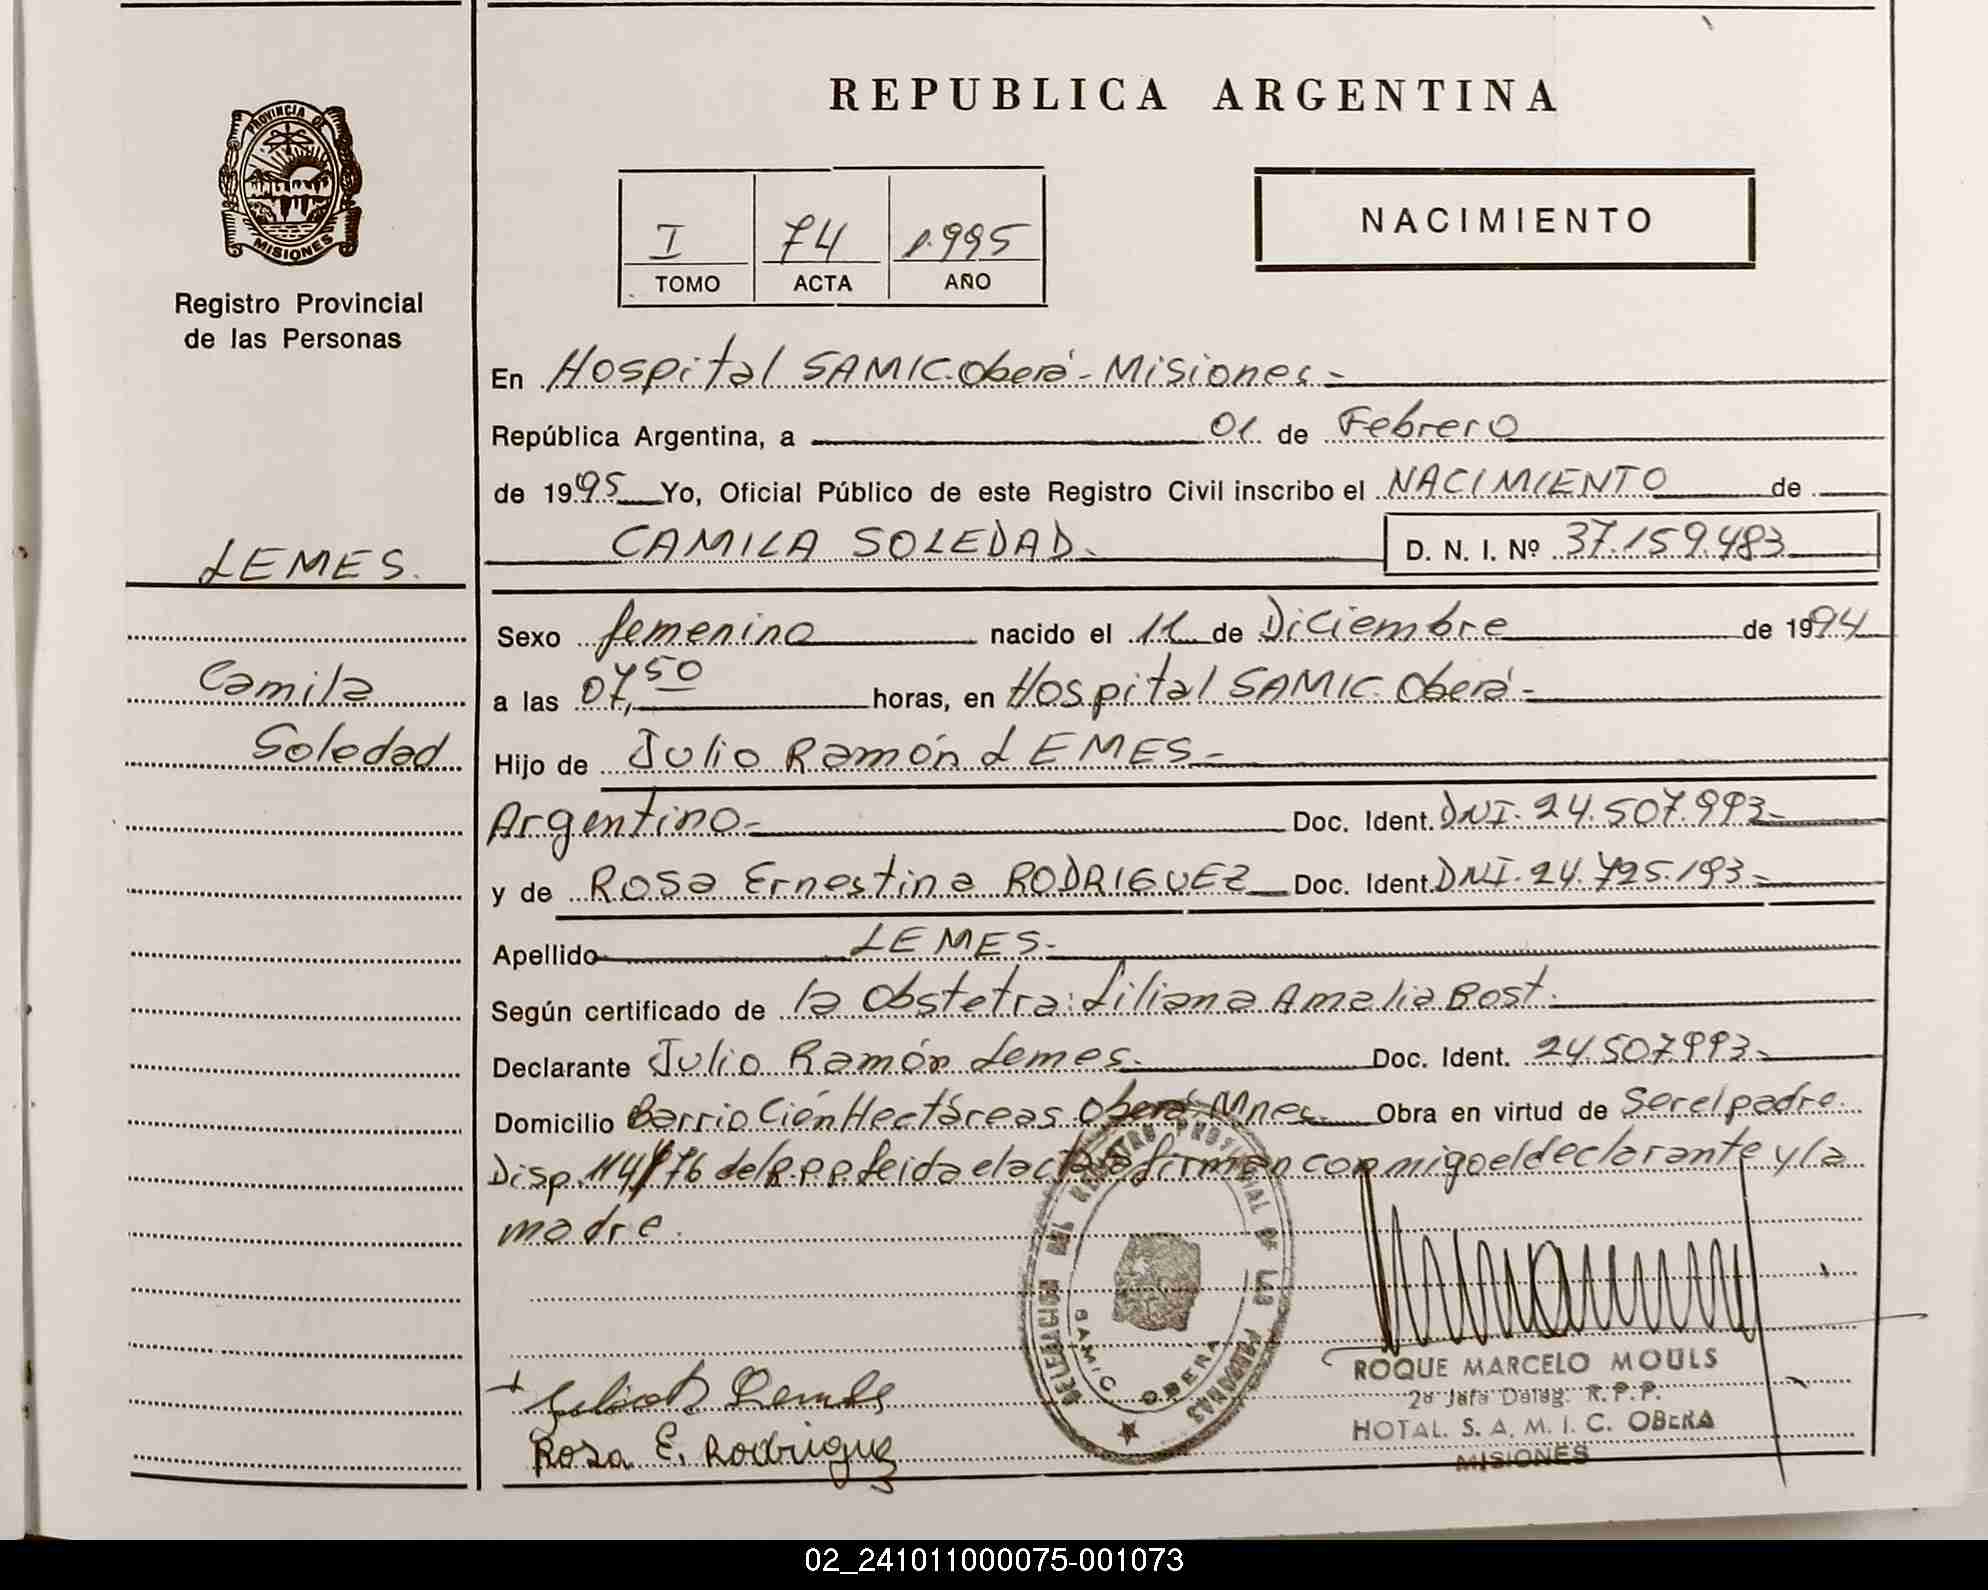 REPUBLICA ARGENTINA
PROVINCIA DE
MISIONES
Registro Provincial
de las Personas
I 74 1.995
TOMO ACTA AÑO
NACIMIENTO
En Hospital SAMIC. Oberá - Misiones -
República Argentina, a 01 de Febrero
de 1995 Yo, Oficial Público de este Registro Civil inscribo el NACIMIENTO de
CAMILA SOLEDAD. D. N. I. Nº 37.159.483
LEMES.
Camila
Soledad
Sexo femenino nacido el 11 de Diciembre de 1994
a las 07,50 horas, en Hospital SAMIC. Oberá -
Hijo de Julio Ramón LEMES -
Argentino - Doc. Ident. DNI. 24.507.993 -
y de Rosa Ernestina RODRIGUEZ Doc. Ident. DNI. 24.725.193 -
Apellido LEMES -
Según certificado de la Obstetra: Liliana Amalia Bost.
Declarante Julio Ramón Lemes. Doc. Ident. 24.507.993 -
Domicilio Barrio Cién Hectáreas Oberá Mnes. Obra en virtud de Ser el padre.
Disp. 114/76 del R.P.P. leida el acta firman conmigo el declarante y la
madre.
DELEGACION DEL REGISTRO PROVINCIAL DE LAS PERSONAS
SAMIC OBERÁ
ROQUE MARCELO MOULS
2º Jefe Deleg. R.P.P.
HOTAL. S. A. M. I. C. OBERA
MISIONES
Rosa E. Rodriguez
02_241011000075-001073